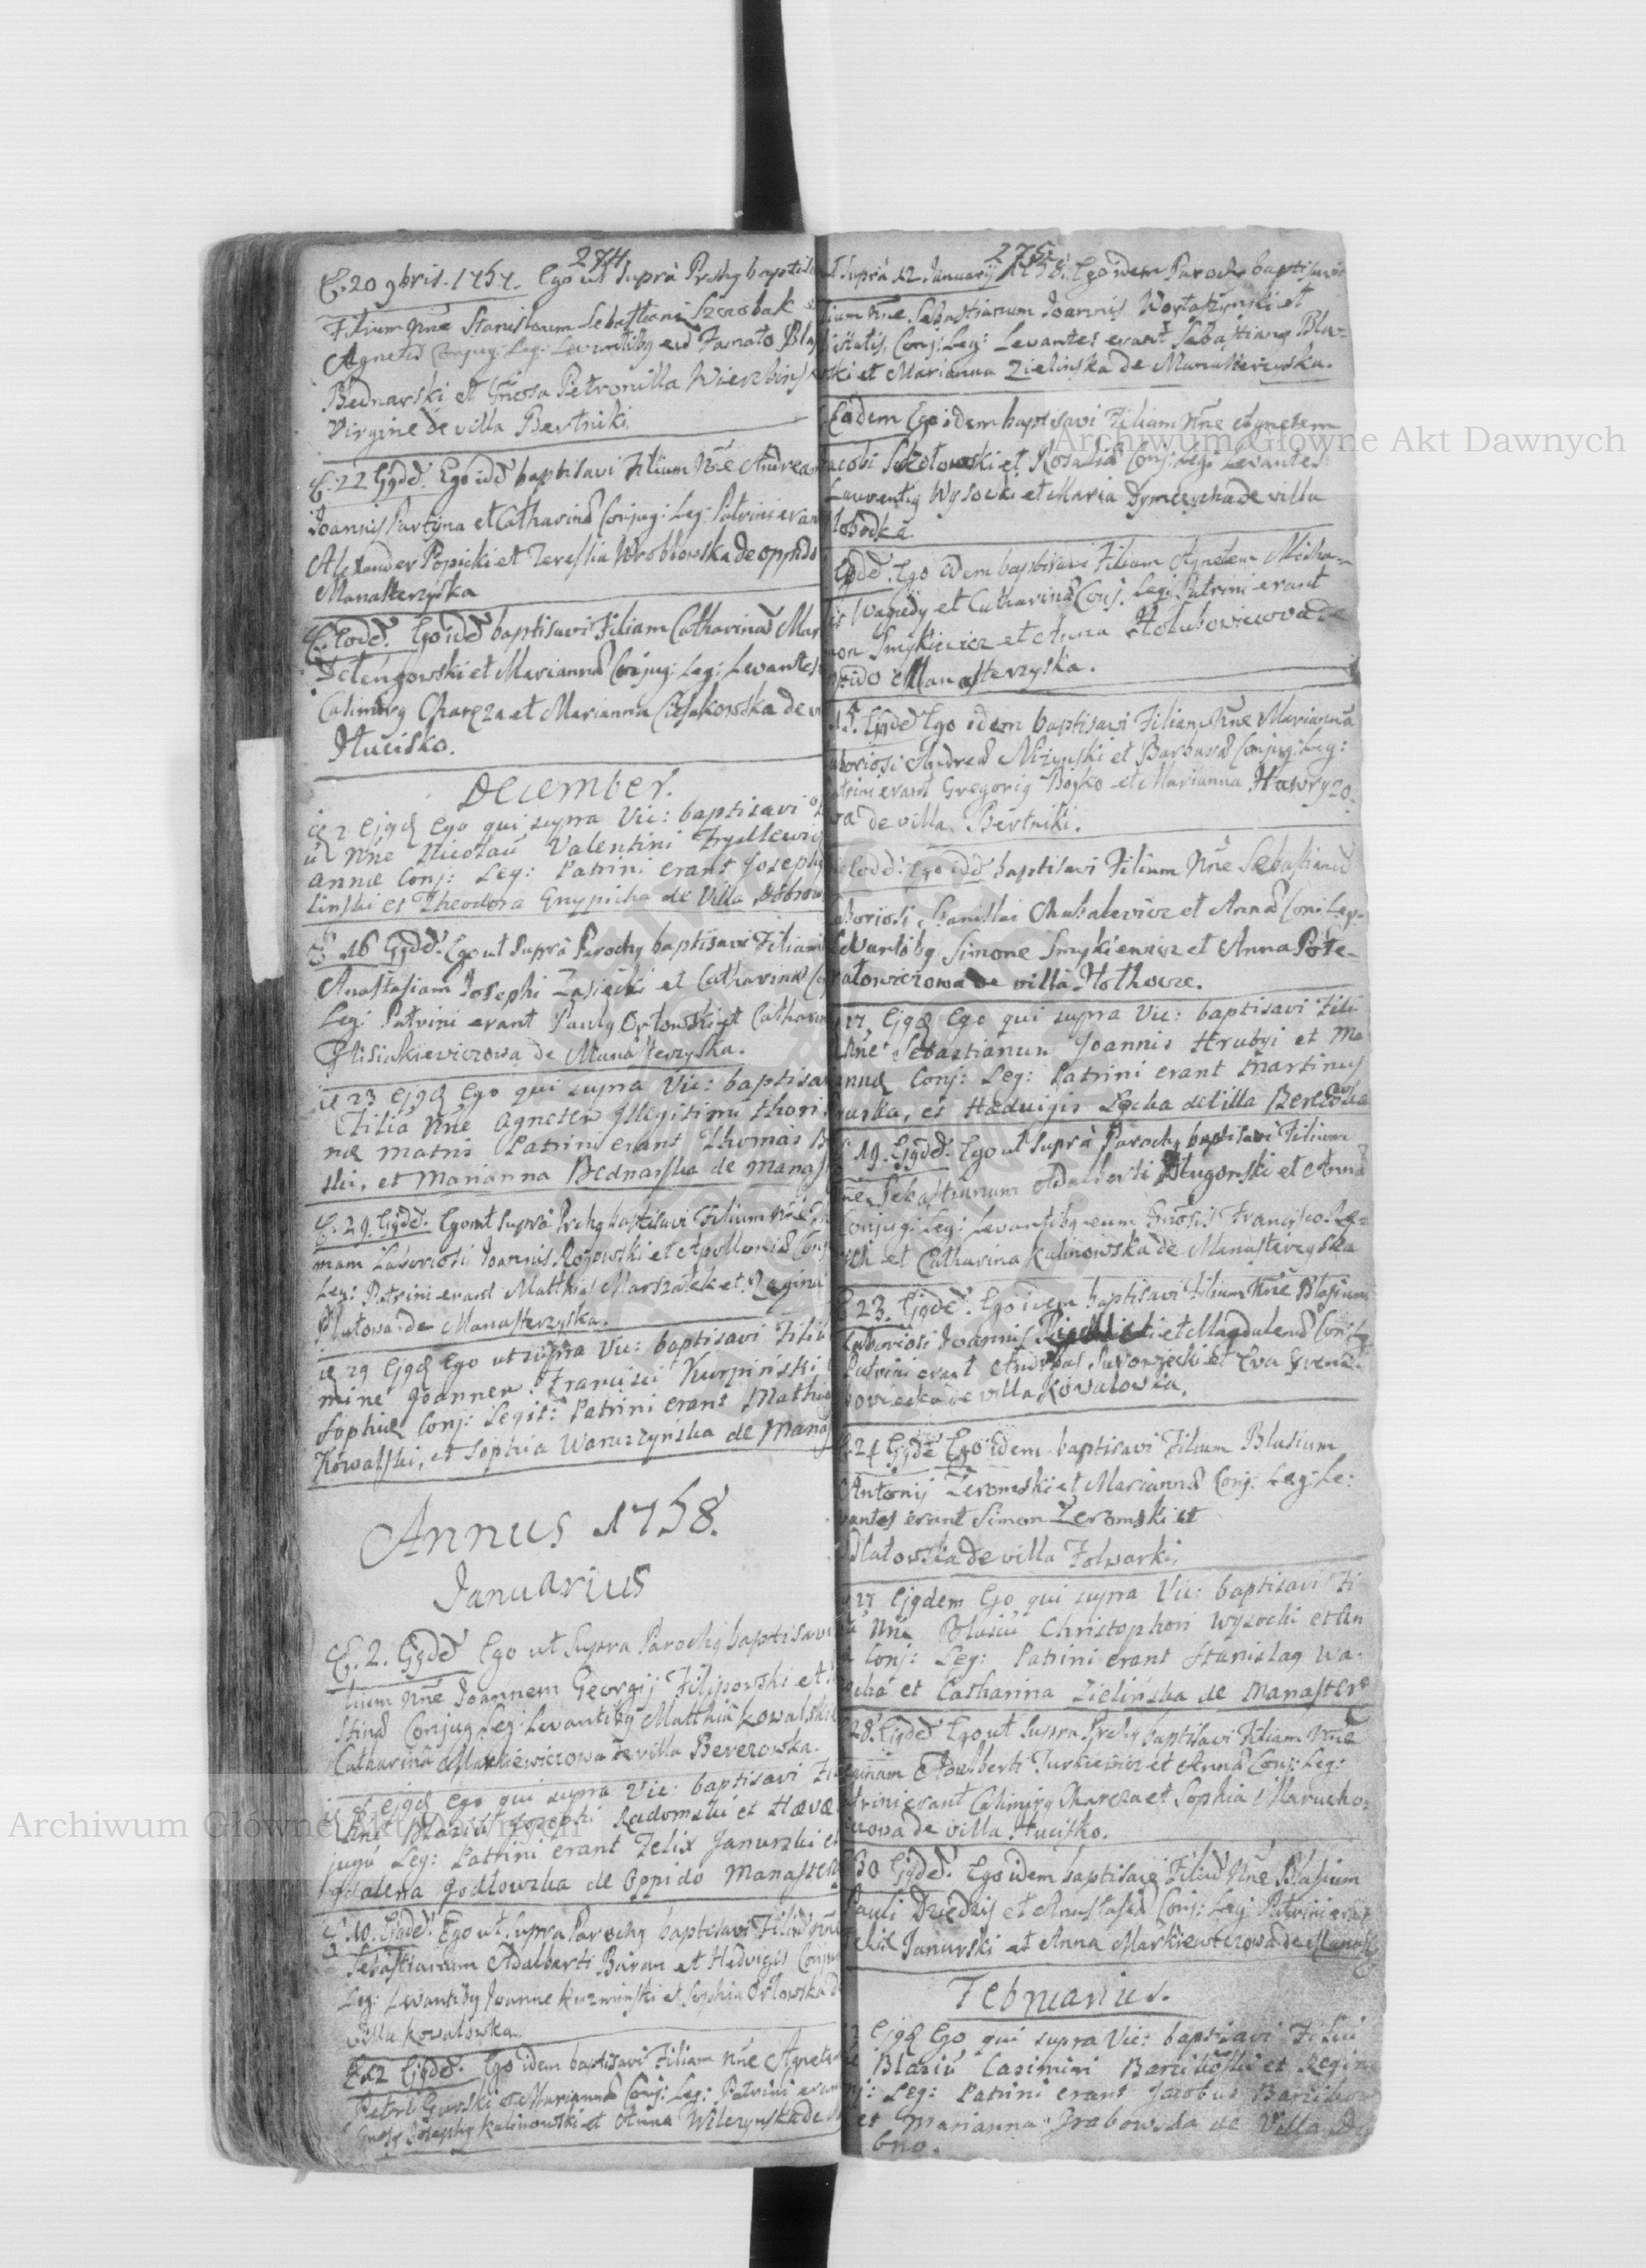 274
E. 20 9bris. 1757. Ego ut supra Prchg baptisa
Filium Nne Stanislaum Sebastiani Szczobak
Agnetis Conjug: Leg: Levantibg eud Famato Blas
Bednarski et Gnosa Petronilla Wierzbins
Virgine de villa Bertniki
E. 22 Ejgdd. Ego idd baptisavi Filium Nne Andream
Joannis Partyna et Catharina Conjug: Leg: Patrini eran
Alexander Popicki et Teressia Wroblowska de oppido
Manasterzyska
E. Eodd. Ego idd baptisavi Filiam Catharinad Mar
Delengowski et Marianna Conjug: Leg: Levantes
Casimirg Charęza et Marianna Ciesakowska de v
Hucisko.
December.
ie 2 Ejgd Ego qui supra Vic: baptisavi
u Nne Nicolau Valentini Frydlewi
Annæ Conj: Leg: Patrini erant Joseph
linski et Theodora Gnypicha de Villa Dobrow
E. 16 Ejgdd. Ego ut supra Parochg baptisavi Filiam
Anastasiam Josephi Zasiecki et Catharina Co
Leg: Patrini erant Paulg Orlowski et Catharin
Flisiakiewiczowa de Manasterzyska.
ie 23 Ejgd Ego qui supra Vic: baptisa
Filia Nne Agnetem Illegitimi thori
næ matris Patrini erant Thomas B
ski, et Marianna Bednarska de Manas
E. 29. Ejgdd. Ego ut supra Prchg baptisavi Filium Nne
mam Laboriosi Joannis Rosowski et Apollonia Conj
Leg: Patrini erant Matthias Marszałek et Regina
Plutowa de Manasterzyska.
ie 29 Ejgd Ego ut supra Vic: baptisavi Filiu
mine Joannem Francisci Kurpinski
Sophiæ Conj: Legit: Patrini erant Mathia
Kowalski, et Sophia Waruszyńska de Manas
Annus 1758.
Januarius
E. 2. Ejgdd Ego ut supra Parochg baptisavi
lium Nne Joannem Georgij Filipowski et
stina Conjug Leg: Levantibg Matthia Kowalski
Catharina Markiewiczowa de villa Berezowka.
ie Ejgd Ego qui supra Vic: baptisavi Fi
Nne Blasiu Josephi Radomski et Hævæ
jugu Leg: Patrini erant Felix Janurski et
gdalena Godłowska de Oppido Manaster
E. 10. Ejgdd. Ego ut supra Parochg baptisavi Filiu Nne
Sebastianum Adalberti Baran et Hedvigis Conju
Leg: Levantibg Joanne Kuzminski et Sophia Orlowska d
villa Kowalowka
E. 12 Ejgdd. Ego idem baptisavi Filiam Nne Agnete
Petri Gurski et Marianna Conj: Leg: Patrini eran
Gnosg Josephg Kalinowski et Anna Wilczynska de
275
supra 12 Januarij 1758. Ego idem Parochg baptisavi
lium Nne Sebastianum Joannis Woytazynski et
istatis, Conj: Leg: Levantes erant Sebastiang Bla-
ski et Marianna Zielinska de Manasterzyska.
Eadem Ego idem baptisavi Filiam Nne Agnetem
acobi Sokołowski et Rosalia Conj: Leg: Levantes
Laurentig Wysocki et Maria Dymczycha de villa
łobodka.
Eodd. Ego idem baptisavi Filiam Agnetem Micha-
et Catharina Conj. Leg: Patrini erant
mon Smykiewicz et Anna Hołubowiczowa de
ppido Manasterzyska.
15. Ejgdd Ego idem baptisavi Filiam Nne Marianna
aboriosi Andrea Nizynski et Barbara Conjug: Leg:
atrini erant Gregorig Boyko et Marianna Hawryzo-
wa de villa Bertniki.
Eodd. Ego idd baptisavi Filium Nne Sebastianu
aboriosi Stanislai Chubalewicz et Anna Conj Leg.
Levantibg Simone Smykiewicz et Anna Pote-
ratowiczowa de villa Hothocze.
17 Ejgd Ego qui supra Vic: baptisavi Fili
Nne Sebastianum Joannis Hrubyi et Ma
annæ Conj: Leg: Patrini erant Martinus
et Hedvigis Łęcka de Villa Berezowka
19. Ejgdd. Ego ut supra Parochg baptisavi Filium
ne Sebastianum Adalberti Długonski et Anna
Conjug: Leg: Levantibg eum Gnosis Francisco
et Catharina Kalinowska de Manasterzyska
E 23. Ejgdd. Ego idem baptisavi Filium Nne Blasium
Laboriosi Joannis et Magdalena Conj
Patrini erant Andreas Surowiecki et Eva
de villa Kowalowka.
24 Ejgdd Ego idem baptisavi Filium Blasium
Antonij Zeromski et Marianna Conj: Leg: Le:
vantes erant Simon Zeromski et
dlatowska de villa Folwarki.
27 Ejgdem Ego qui supra Vic: baptisavi Fi
u Nne Blasiu Christophori Wysocki et An
a Conj: Leg: Patrini erant Stanislag Wa-
et Catharina Zielinska de Manaster
28. Ejgdd Ego ut supra Prchg baptisavi Filiam Nne
ginam Adalberti Turkiewicz et Anna Conj: Leg:
atrini erant Casimirg Charęza et Sophia Marucho-
wa de villa Hucisko.
30 Ejgdd. Ego idem baptisavi Filiu Nne Blasium
Pauli Dziedzij et Anastasia Conj: Leg: Patrini erāt
Felix Janurski et Anna Markiewiczowa de Manas
Februarius.
2 Ejgd Ego qui supra Vic: baptisavi Filiu
Blasiu Casimiri Barzikoski et Regin
nj: Leg: Patrini erant Jacobus Barzikow
et Marianna Grabowska de Villa
bno.
Archiwum Główne Akt Dawnych
Archiwum Główne Akt Dawnych